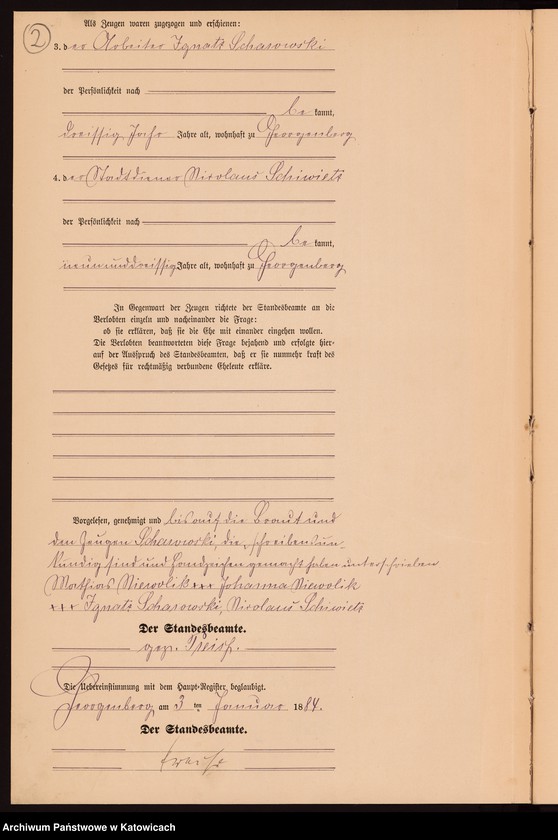 2
Als Zeugen waren zugezogen und erschienen:
3. der Arbeiter Ignatz Scharowski
der Persönlichkeit nach
be kannt,
dreissig Jahr Jahre alt, wohnhaft zu Georgenberg
4. der Stadtdiener Nicolaus Schiwietz
der Persönlichkeit nach
be kannt,
neununddreissig Jahre alt, wohnhaft zu Georgenberg
In Gegenwart der Zeugen richtete der Standesbeamte an die
Verlobten einzeln und nacheinander die Frage:
ob sie erklären, daß sie die Ehe mit einander eingehen wollen.
Die Verlobten beantworteten diese Frage bejahend und erfolgte hier-
auf der Ausspruch des Standesbeamten, daß er sie nunmehr kraft des
Gesetzes für rechtmäßig verbundene Eheleute erkläre.
Vorgelesen, genehmigt und bis auf die Braut und
den Zeugen Scharowski, die schreibensun-
kundig sind und Handzeichen gemacht haben unterschrieben
Mathias Niewolik +++ Johanna Niewolik
+++ Ignatz Scharowski, Nicolaus Schiwietz
Der Standesbeamte.
gez.
Die Uebereinstimmung mit dem Haupt-Register beglaubigt.
Georgenberg am 3 ten Januar 1884.
Der Standesbeamte.
Archiwum Państwowe w Katowicach